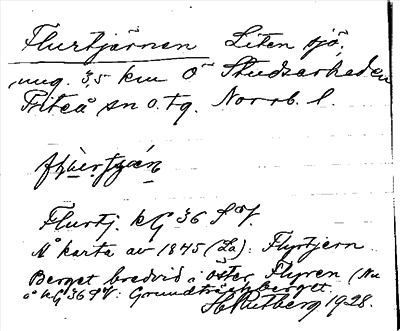 Flurtjärnen Liten sjö,
ung. 3,5 km O Studsarheden
Piteå sn o. tg. Norrb. l.
Flurtj. kG 36 SV
Å karta av 1845 (La): Flyrtjern
Berget bredvid i öster, Flyren (Nu
å kG 36 SV: Grundträskberget.
H. Rutberg 1928.